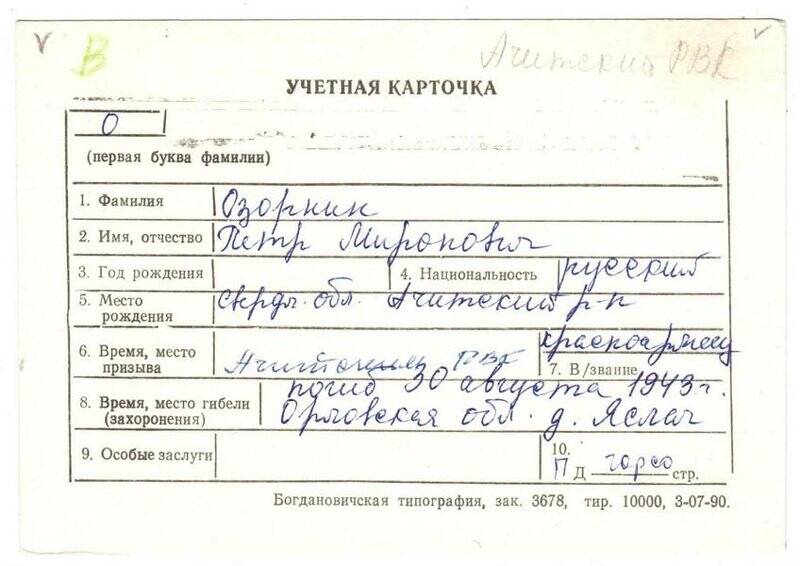 В
Ачитский РВК
УЧЕТНАЯ КАРТОЧКА
О
(первая буква фамилии)
1. Фамилия Озорнин
2. Имя, отчество Петр Миронович
3. Год рождения 4. Национальность русский
5. Место рождения свердл. обл. Ачитский р-н
6. Время, место призыва Ачитским РВК
красноармеец
7. В/звание
погиб 30 августа 1943 г.
8. Время, место гибели (захоронения) Орловская обл. д.
9. Особые заслуги
10.
П Д стр.
Богдановичская типография, зак. 3678, тир. 10000, 3-07-90.